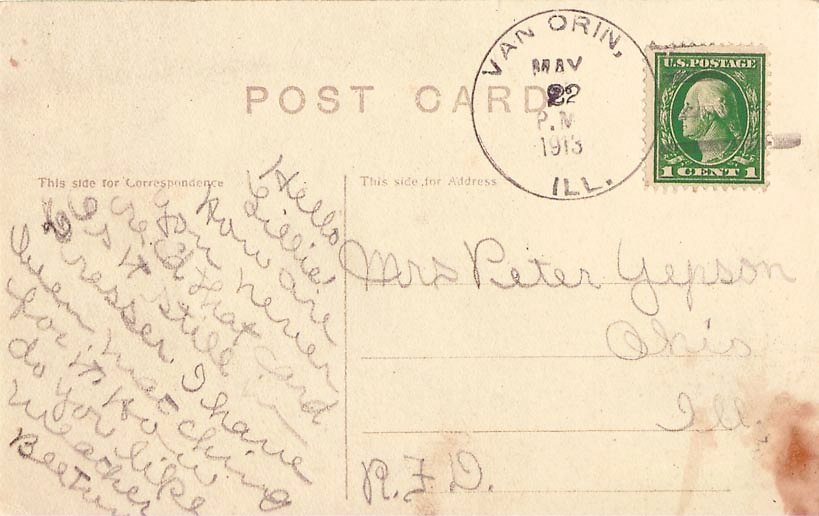 POST CARD
VAN ORIN,
MAY
22
P.M
1913
ILL.
U.S. POSTAGE
1 CENT 1
This side for Correspondence
This side for Address
Hello
Lillie
how are
you never
rec'd that card
is it still in
Dresser I have
been watching
for it How
do you like
weather
Mrs Peter Yepson
Ohio
Ill.
R.F.D.